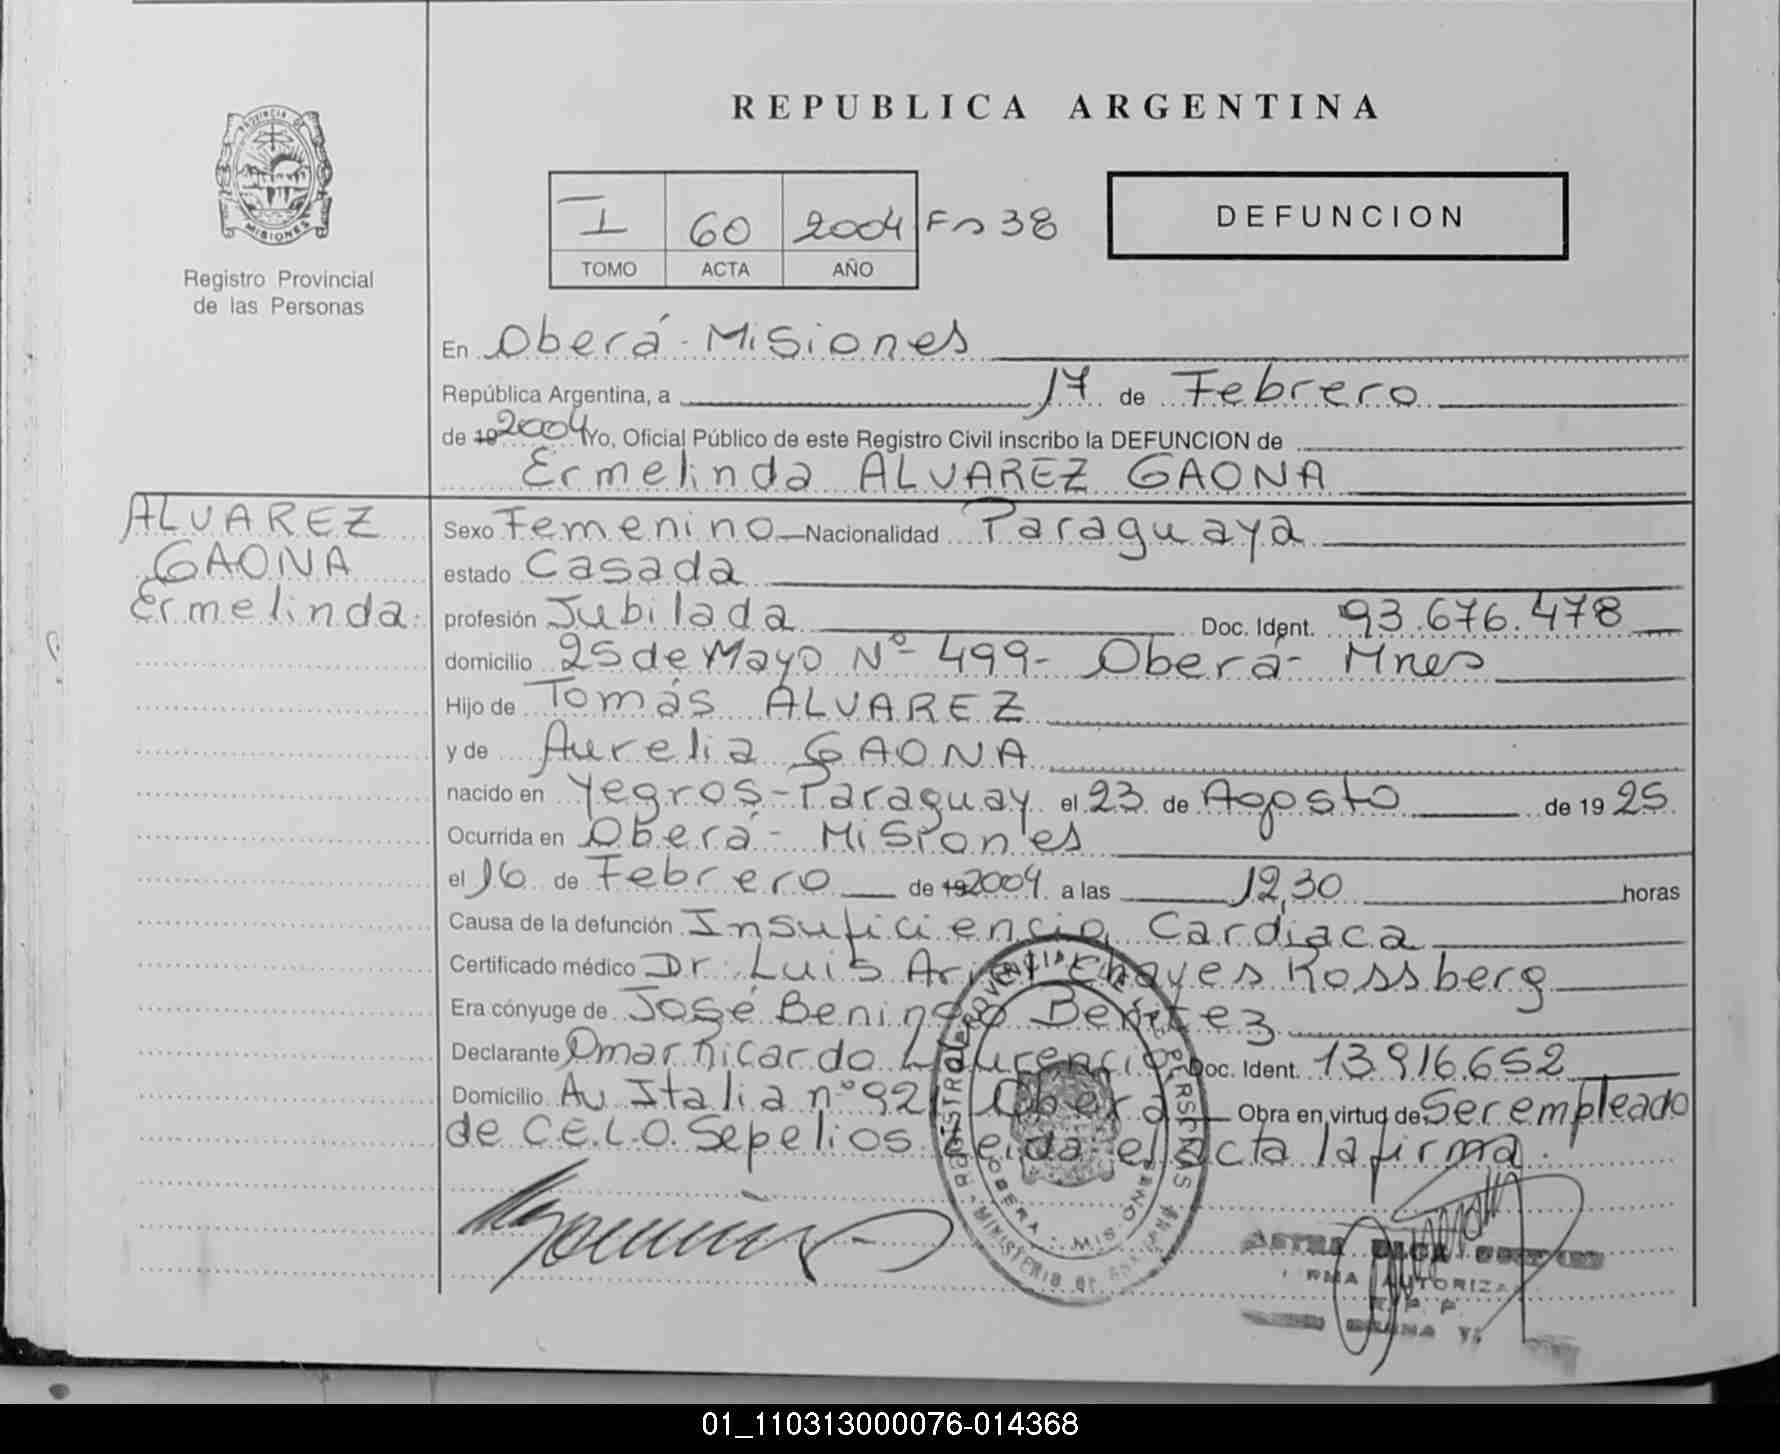 REPUBLICA ARGENTINA
PROVINCIA DE
MISIONES
Registro Provincial
de las Personas
I 60 2004 Fº 38
TOMO ACTA AÑO
DEFUNCION
En Oberá - Misiones
República Argentina, a 17 de Febrero
de 19 2004 Yo, Oficial Público de este Registro Civil inscribo la DEFUNCION de
Ermelinda ALVAREZ GAONA
ALVAREZ
GAONA
Ermelinda
Sexo Femenino Nacionalidad Paraguaya
estado Casada
profesión Jubilada Doc. Ident. 93.676.478
domicilio 25 de Mayo Nº 499 - Oberá - Mnes
Hijo de Tomás ALVAREZ
y de Aurelia GAONA
nacido en Yegros - Paraguay el 23 de Agosto de 19 25
Ocurrida en Oberá - Misiones
el 16 de Febrero de 19 2004 a las 12,30 horas
Causa de la defunción Insuficiencia Cardiaca
Certificado médico Dr. Luis Ariel Chaves Rossberg
Era cónyuge de José Benigno Benitez
Declarante Omar Ricardo Laurencio Doc. Ident. 13.916.652
Domicilio Av Italia nº 92 Oberá Obra en virtud de Ser empleado
de C.E.L.O. Sepelios Leida el acta la firma.
OBERA - MISIONES
MINISTERIO DE
AUTORIZA
01_110313000076-014368